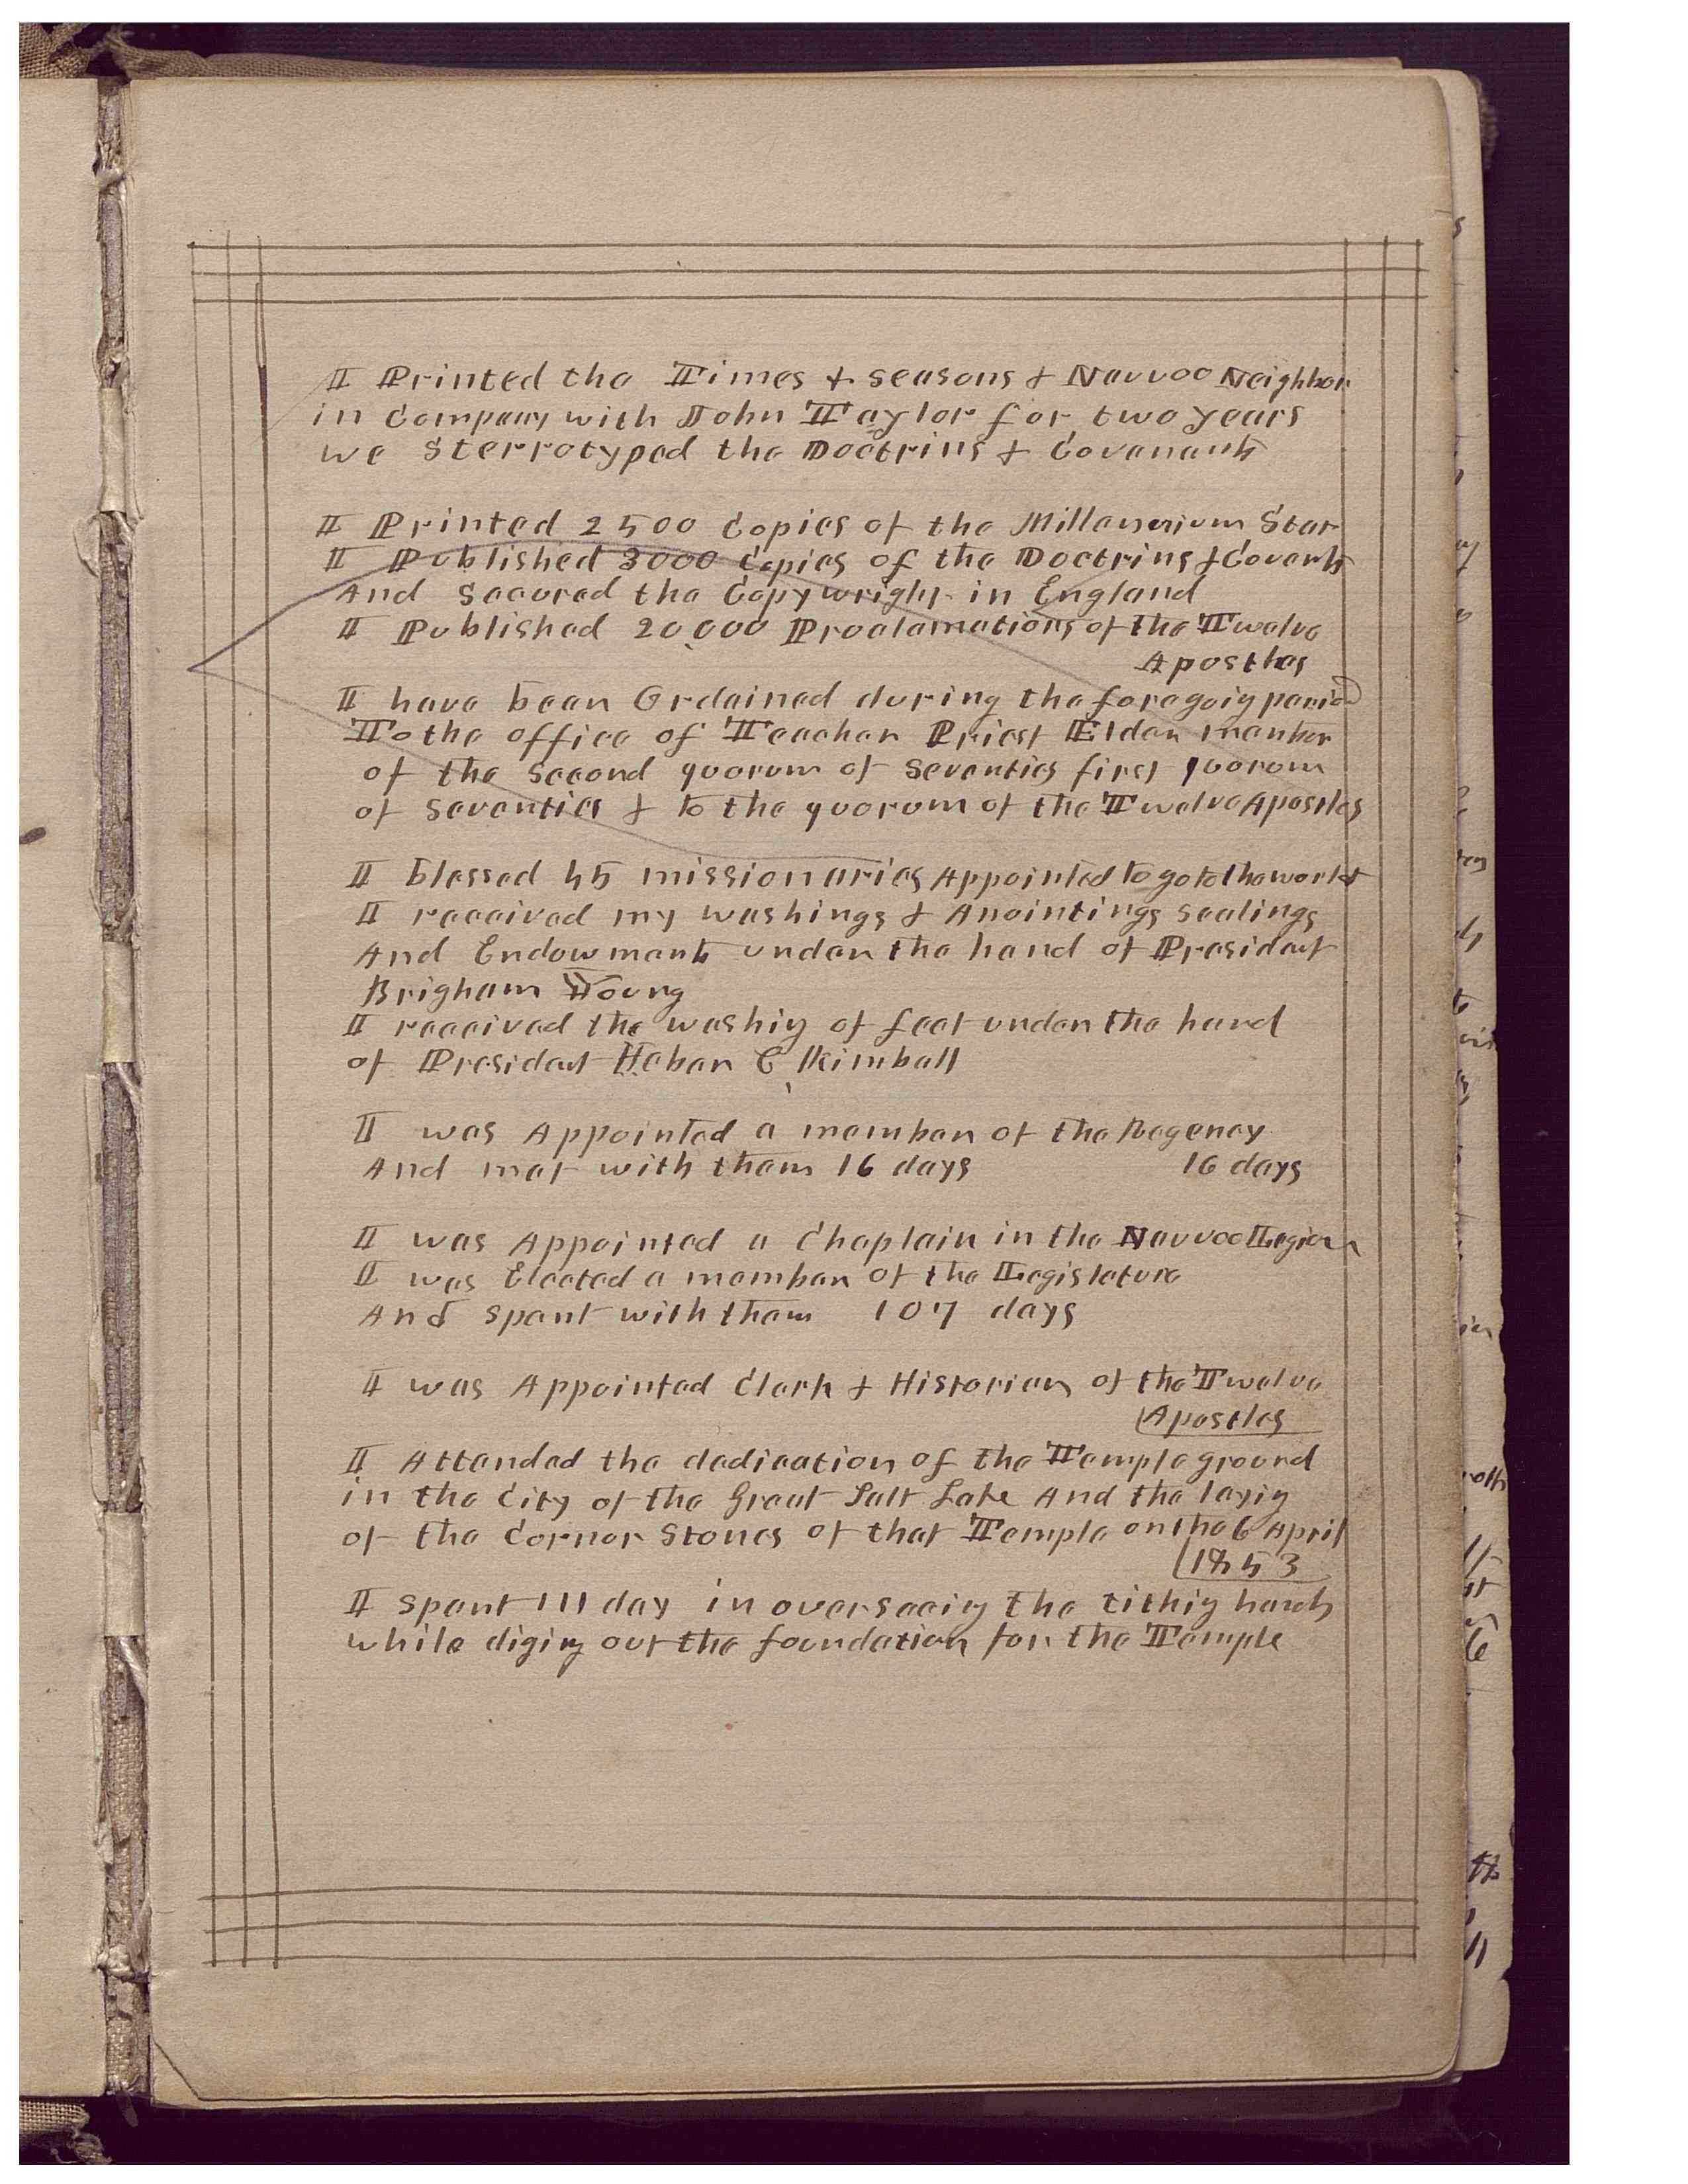 I Printed the Times & seasons & Nauvoo Neighbor
in Company with John Taylor for two years
we Sterrotyped the Doctrins & Covenants
I Printed 2500 Copies of the Millennium Star
I Published 3000 Copies of the Doctrins & Covents
And Secured the Copywright in England
I Published 20,000 Proclamations of the Twelve
Apostles
I have been Ordained during the foregoig period
To the office of Teacher Priest Elder member
of the Second quorum of Seventies first quorum
of Seventies & to the quorum of the Twelve Apostles
I blessed 45 missionaries Appointed to go to the world
I received my washings & Anointings sealings
And Endowments under the hand of President
Brigham Young
I received the washig of feet under the hand
of President Heber C Kimball
I was Appointed a member of the Regency
And met with them 16 days 16 days
I was Appointed a Chaplain in the Nauvoo Legion
I was Elected a member of the Legislature
And spent with them 107 days
I was Appointed Clerk & Historian of the Twelve
Apostles
I Attended the dedication of the Temple ground
in the City of the Great Salt Lake And the layig
of the Corner Stones of that Temple on the 6 April
1853
I spent 111 day in overseeig the tithig hands
while digig out the foundation for the Temple